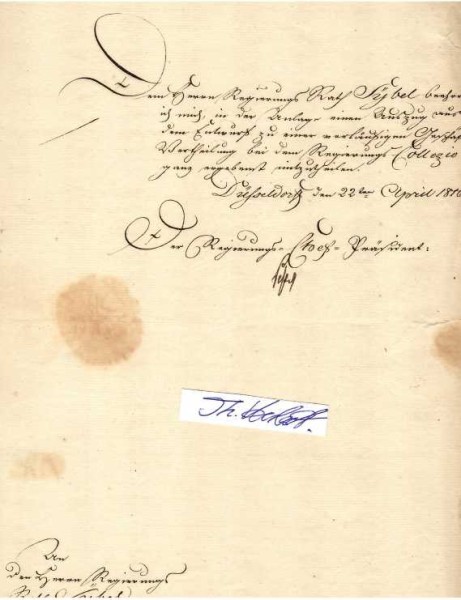 Dem Herrn Regierungs Rath Sybel beehre
ich mich, in der Anlage einen Auszug aus
dem Entwurf zu einer vorläufigen Geschäf
Vertheilung bei dem Regierungs Collegio
ganz ergebenst mitzutheilen.
Düsseldorf den 22ten April 1816
Der Regierungs-Chef-Präsident:
Th.
An
den Herrn Regierungs
Rath Sybel